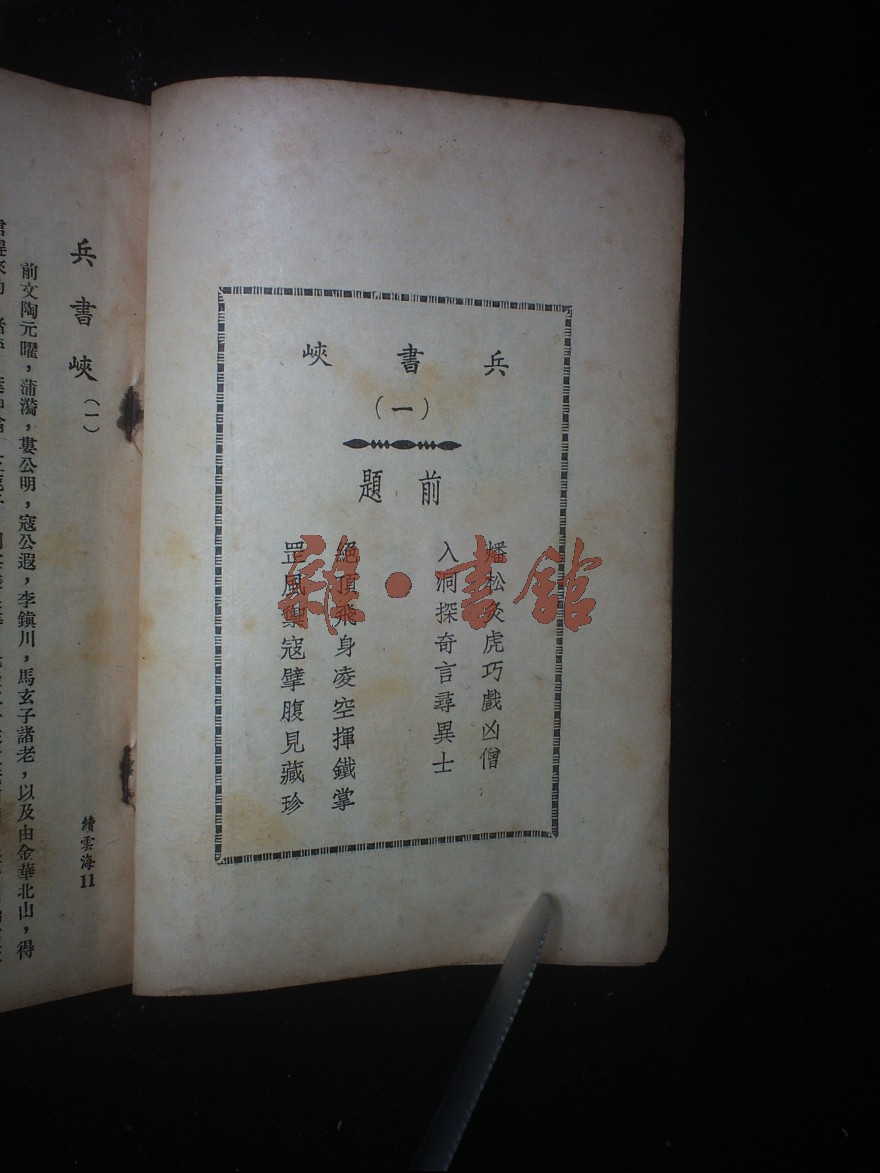 兵書峽
(一)
前題
燔松炙虎巧戲凶僧
入洞探奇言尋異士
絕頂飛身凌空揮鐵掌
罡風禦寇擘腹見藏珍
兵書峽(一)
續雲海11
前文陶元曜，蒲漪，婁公明，寇公遐，李鎮川，馬玄子諸老，以及由金華北山，得
雜·書館